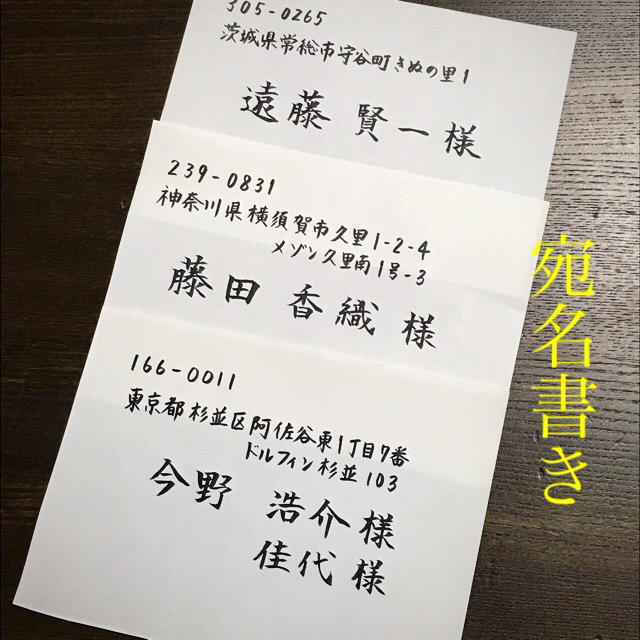 305-0265
茨城県常総市守谷町きぬの里1
遠藤 賢一様
239-0831
神奈川県横須賀市久里1-2-4
メゾン久里南1号-3
藤田 香織 様
166-0011
東京都杉並区阿佐谷東1丁目7番
ドルフィン杉並103
今野 浩介様
佳代様
宛名書き